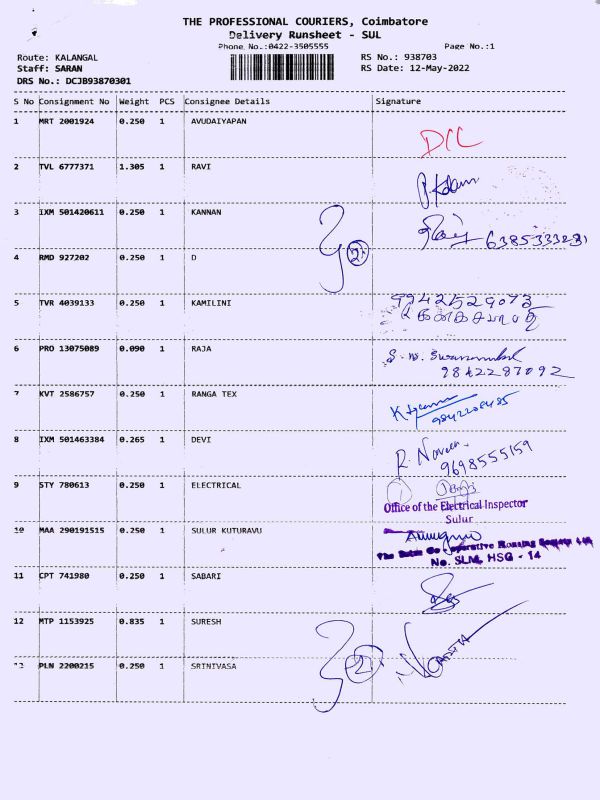 THE PROFESSIONAL COURIERS, Coimbatore
Delivery Runsheet - SUL
Phone No.:0422-3505555
Page No.:1
Route: KALANGAL
RS No.: 938703
Staff: SARAN
RS Date: 12-May-2022
DRS No.: DCJB93870301
S No Consignment No Weight PCS Consignee Details Signature
1 MRT 2001924 0.250 1 AVUDAIYAPAN
DCC
2 TVL 6777371 1.305 1 RAVI
3 IXM 501420611 0.250 1 KANNAN
6385333231
2
4 RMD 927202 0.250 1 D
5 TVR 4039133 0.250 1 KAMILINI
9942529073
6 PRO 13075089 0.090 1 RAJA
9842287092
7 KVT 2586757 0.250 1 RANGA TEX
8 IXM 501463384 0.265 1 DEVI
R. Naveen
9698555159
9 STY 780613 0.250 1 ELECTRICAL
Office of the Electrical Inspector
Sulur
10 MAA 290191515 0.250 1 SULUR KUTURAVU
The Sulur Co-operative Housing Society Ltd
No. SLM, HSG - 14
11 CPT 741980 0.250 1 SABARI
12 MTP 1153925 0.835 1 SURESH
2
13 PLN 2200215 0.250 1 SRINIVASA